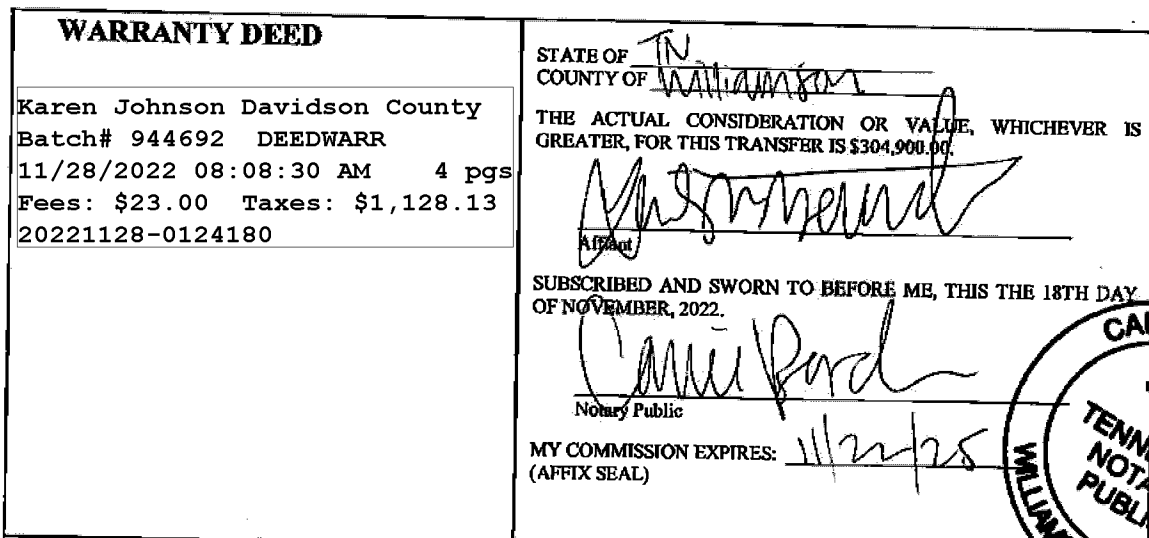 WARRANTY DEED
Karen Johnson Davidson County
Batch# 944692 DEEDWARR
11/28/2022 08:08:30 AM 4 pgs
Fees: $23.00 Taxes: $1,128.13
20221128-0124180
STATE OF TN
COUNTY OF Williamson
THE ACTUAL CONSIDERATION OR VALUE, WHICHEVER IS
GREATER, FOR THIS TRANSFER IS $304,900.00.
Affiant
SUBSCRIBED AND SWORN TO BEFORE ME, THIS THE 18TH DAY
OF NOVEMBER, 2022.
Notary Public
MY COMMISSION EXPIRES: 11/22/25
(AFFIX SEAL)